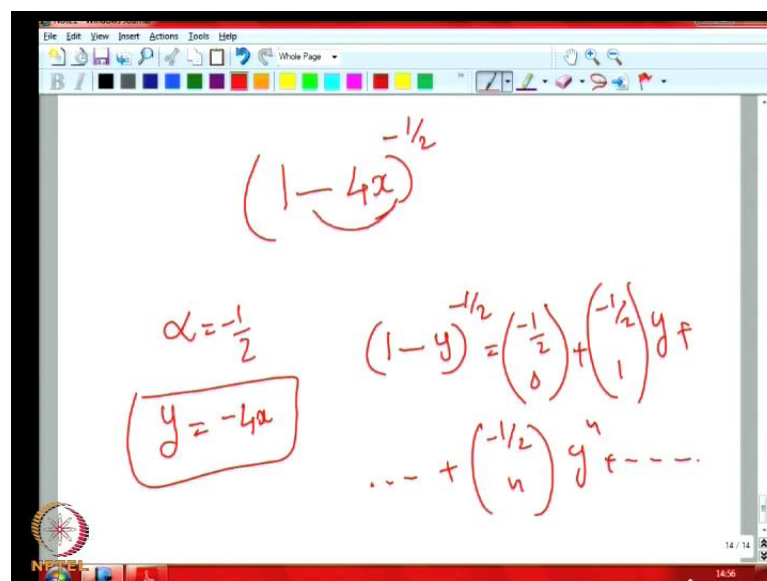 File Edit View Insert Actions Tools Help
Whole Page
B I
(1 - 4x)^{-1/2}
α = -1/2
y = -4x
(1 - y)^{-1/2} = \binom{-1/2}{0} + \binom{-1/2}{1} y +
... + \binom{-1/2}{n} y^n + ----.
14 / 14
NPTEL
14:56